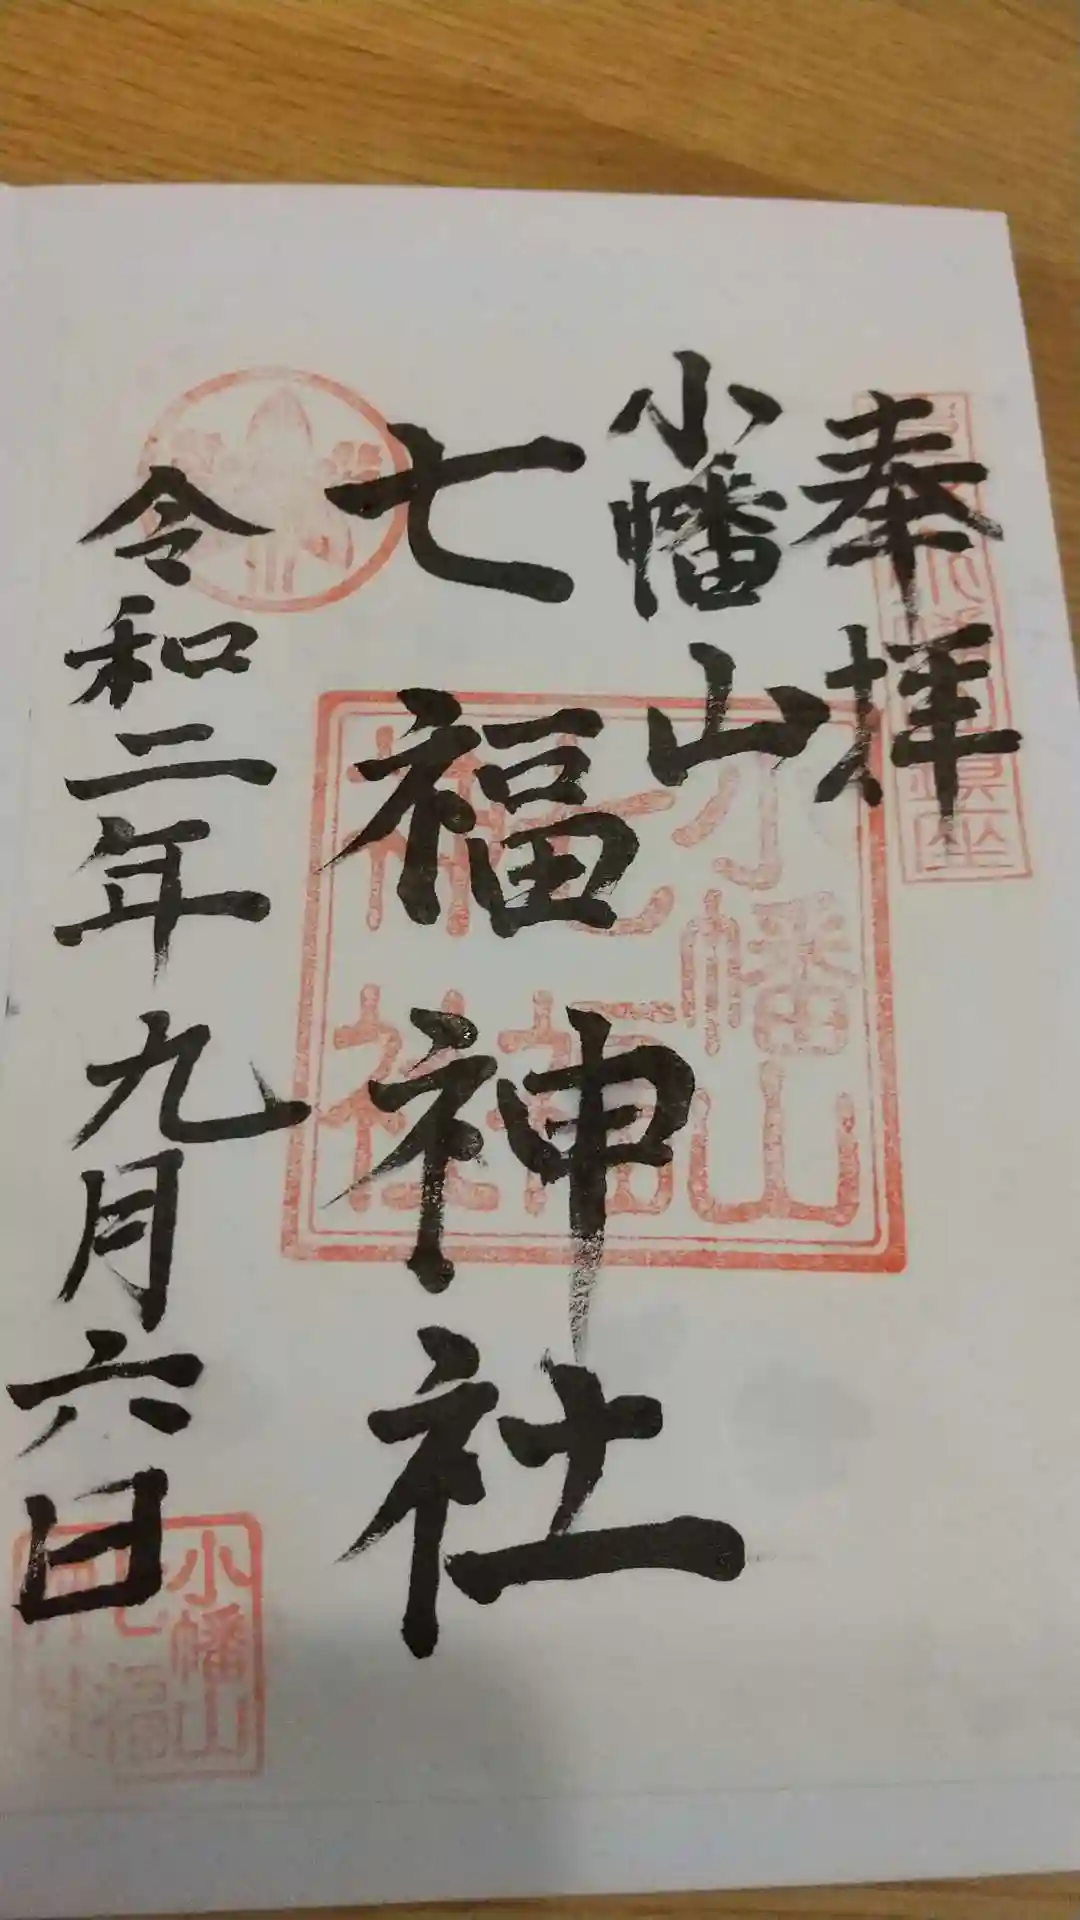 奉拝
小幡山
七福神社
令和二年九月六日
小幡山
七福
神社
小幡山
七福